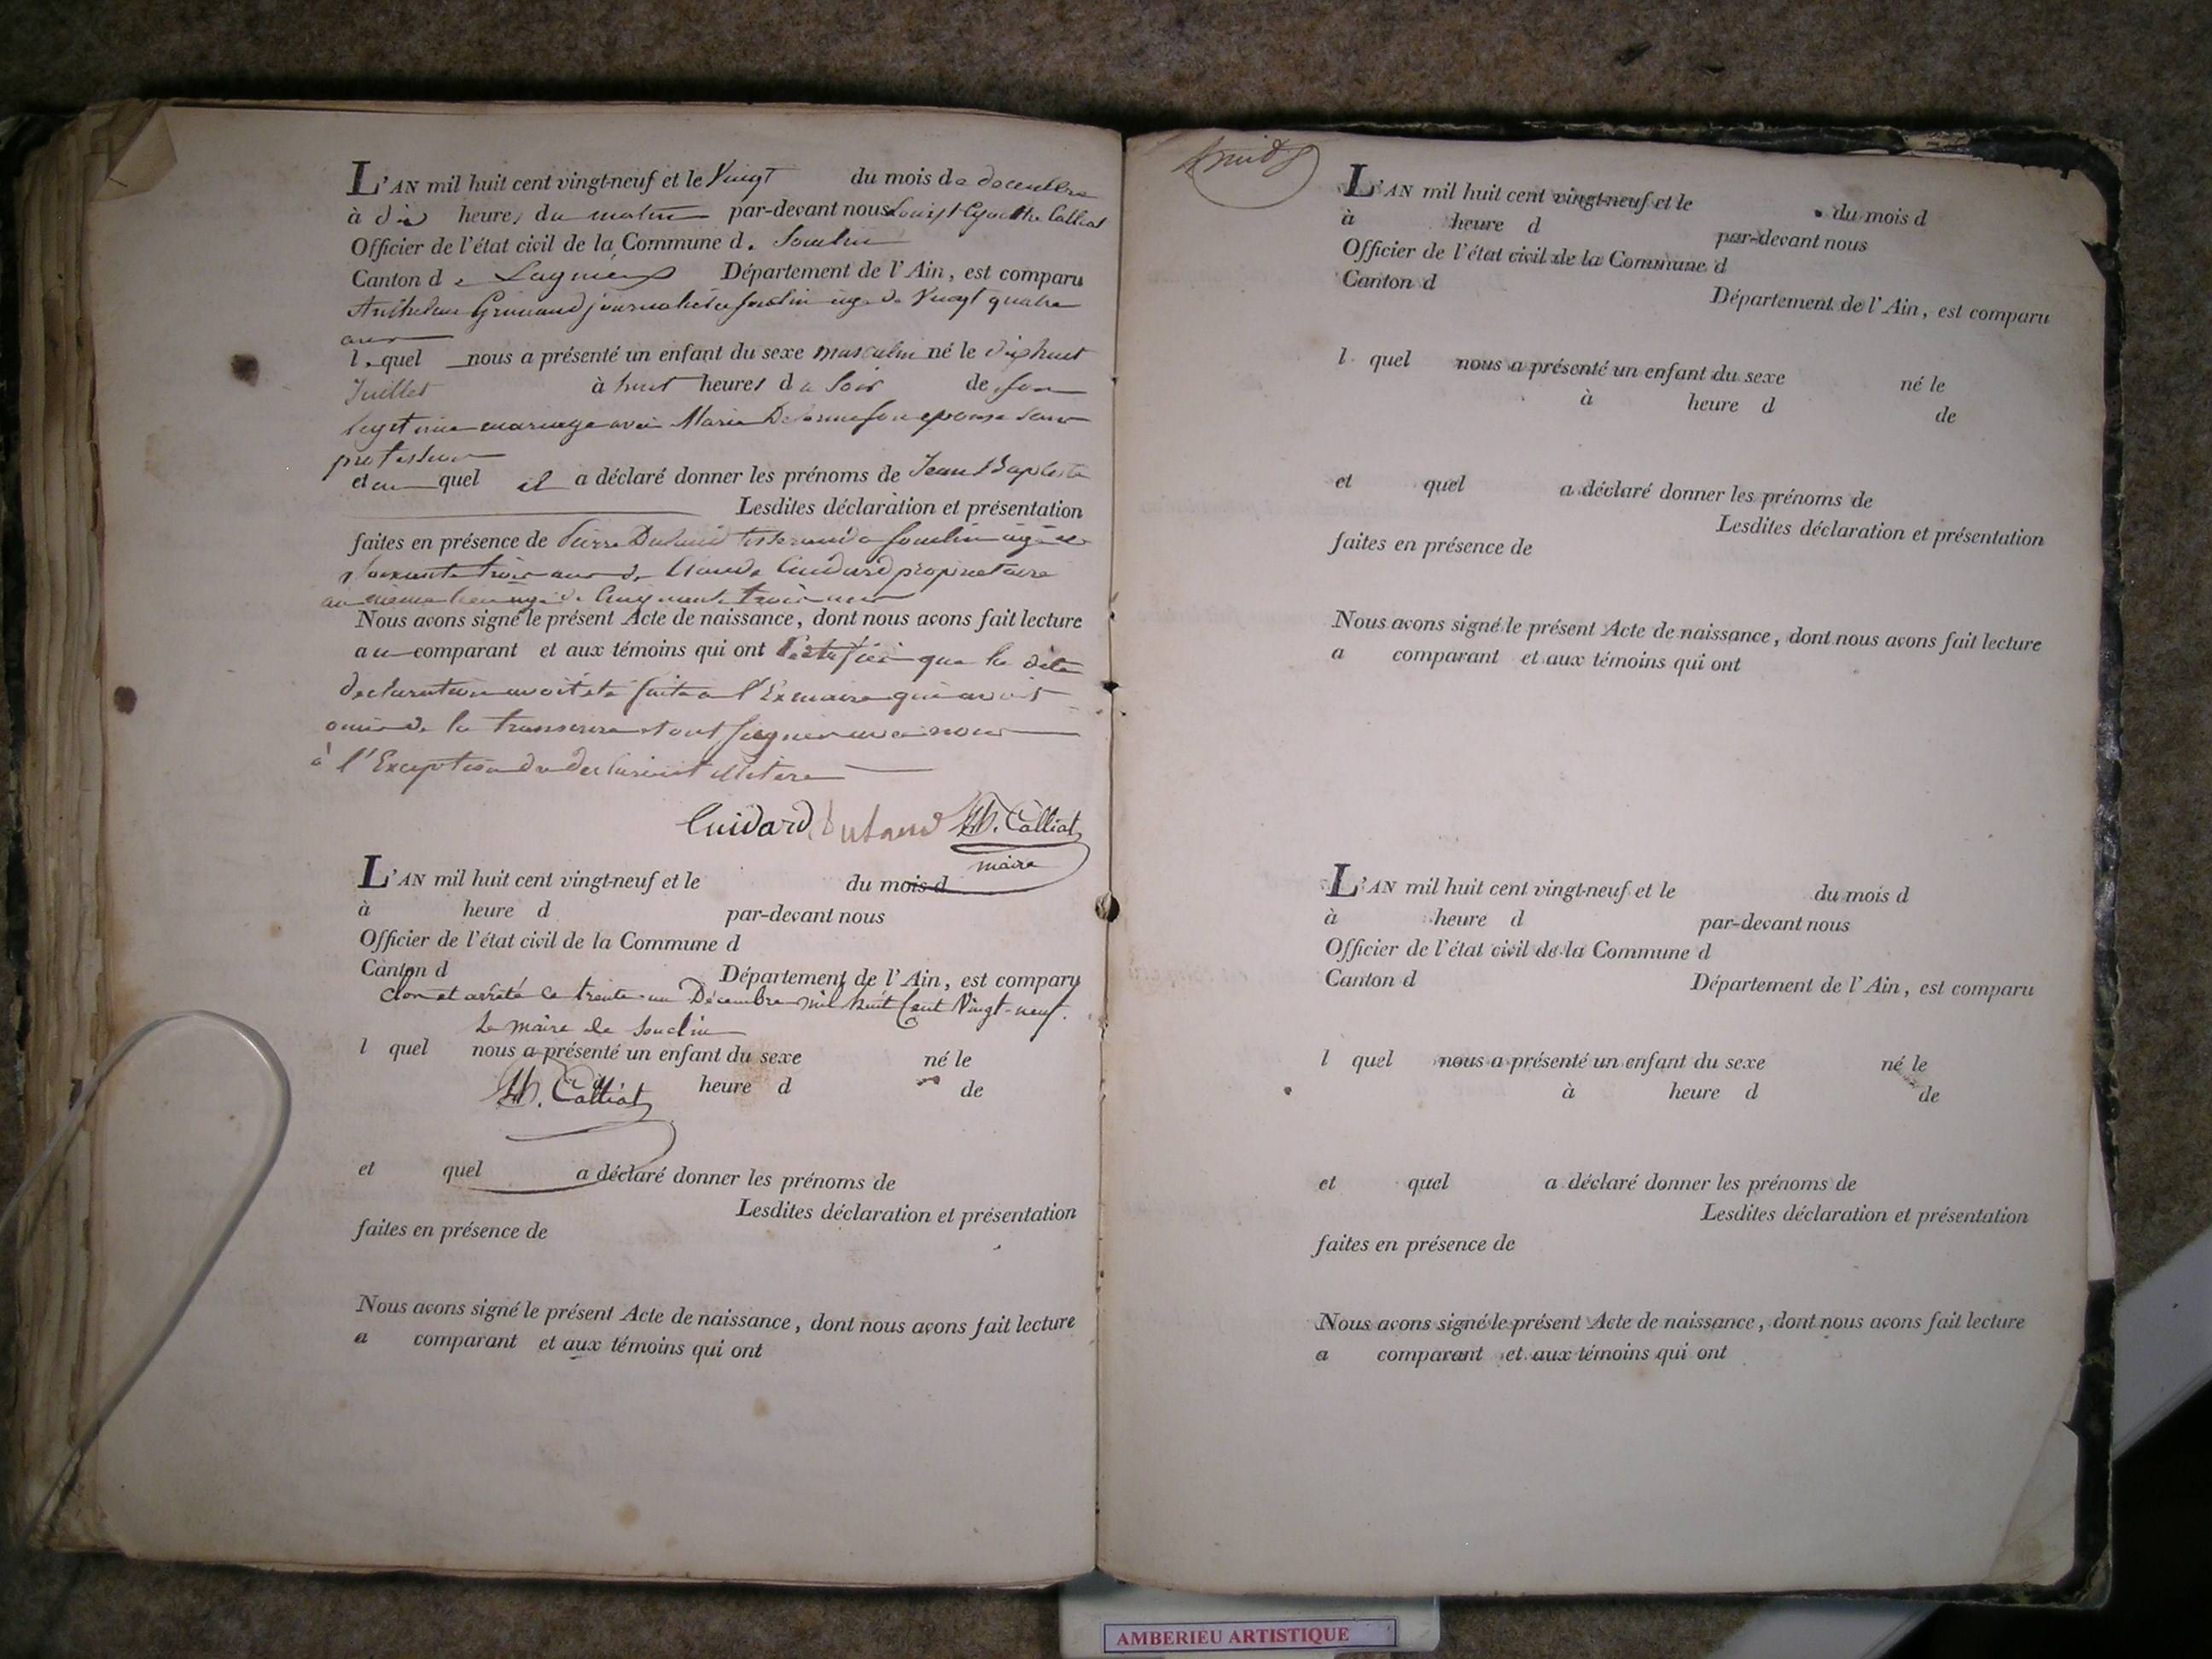 L'AN mil huit cent vingt-neuf et le Vingt du mois de decembre
à dix heures du matin par-devant nous Calliat
Officier de l'état civil de la Commune d. Souclin
Canton de Lagnieu Département de l'Ain, est comparu
Anthelme journalier a souclin age de Vingt quatre
ans
lequel nous a présenté un enfant du sexe masculin né le dix huit
Juillet à huit heures du soir de son
legitime mariage avec Marie son epouse sans
profession
et au quel il a déclaré donner les prénoms de Jean Baptiste
Lesdites déclaration et présentation
faites en présence de Pierre Dutand tisserand a souclin agé de
soixante trois ans & Claude Cuidard proprietaire
au meme lieu agé de Cinquante trois ans
Nous avons signé le présent Acte de naissance, dont nous avons fait lecture
au comparant et aux témoins qui ont certifié que la dite
declaration avoit été faite a l'Exmaire qui avoit
omis de la transcrire et ont signer avec nous
à l'Exception du declarant illitere
Cuidard dutand Calliat
maire
L'AN mil huit cent vingt-neuf et le du mois d
à heure d par-devant nous
Officier de l'état civil de la Commune d
Canton d Département de l'Ain, est comparu
Clos et arrêté ce trente-un Décembre mil huit Cent Vingt-neuf.
Le maire de Souclin
l quel nous a présenté un enfant du sexe né le
à heure d de
Calliat
et quel a déclaré donner les prénoms de
Lesdites déclaration et présentation
faites en présence de
Nous avons signé le présent Acte de naissance, dont nous avons fait lecture
a comparant et aux témoins qui ont
L'AN mil huit cent vingt-neuf et le du mois d
à heure d par-devant nous
Officier de l'état civil de la Commune d
Canton d Département de l'Ain, est comparu
l quel nous a présenté un enfant du sexe né le
à heure d de
et quel a déclaré donner les prénoms de
Lesdites déclaration et présentation
faites en présence de
Nous avons signé le présent Acte de naissance, dont nous avons fait lecture
a comparant et aux témoins qui ont
L'AN mil huit cent vingt-neuf et le du mois d
à heure d par-devant nous
Officier de l'état civil de la Commune d
Canton d Département de l'Ain, est comparu
l quel nous a présenté un enfant du sexe né le
à heure d de
et quel a déclaré donner les prénoms de
Lesdites déclaration et présentation
faites en présence de
Nous avons signé le présent Acte de naissance, dont nous avons fait lecture
a comparant et aux témoins qui ont
AMBERIEU ARTISTIQUE